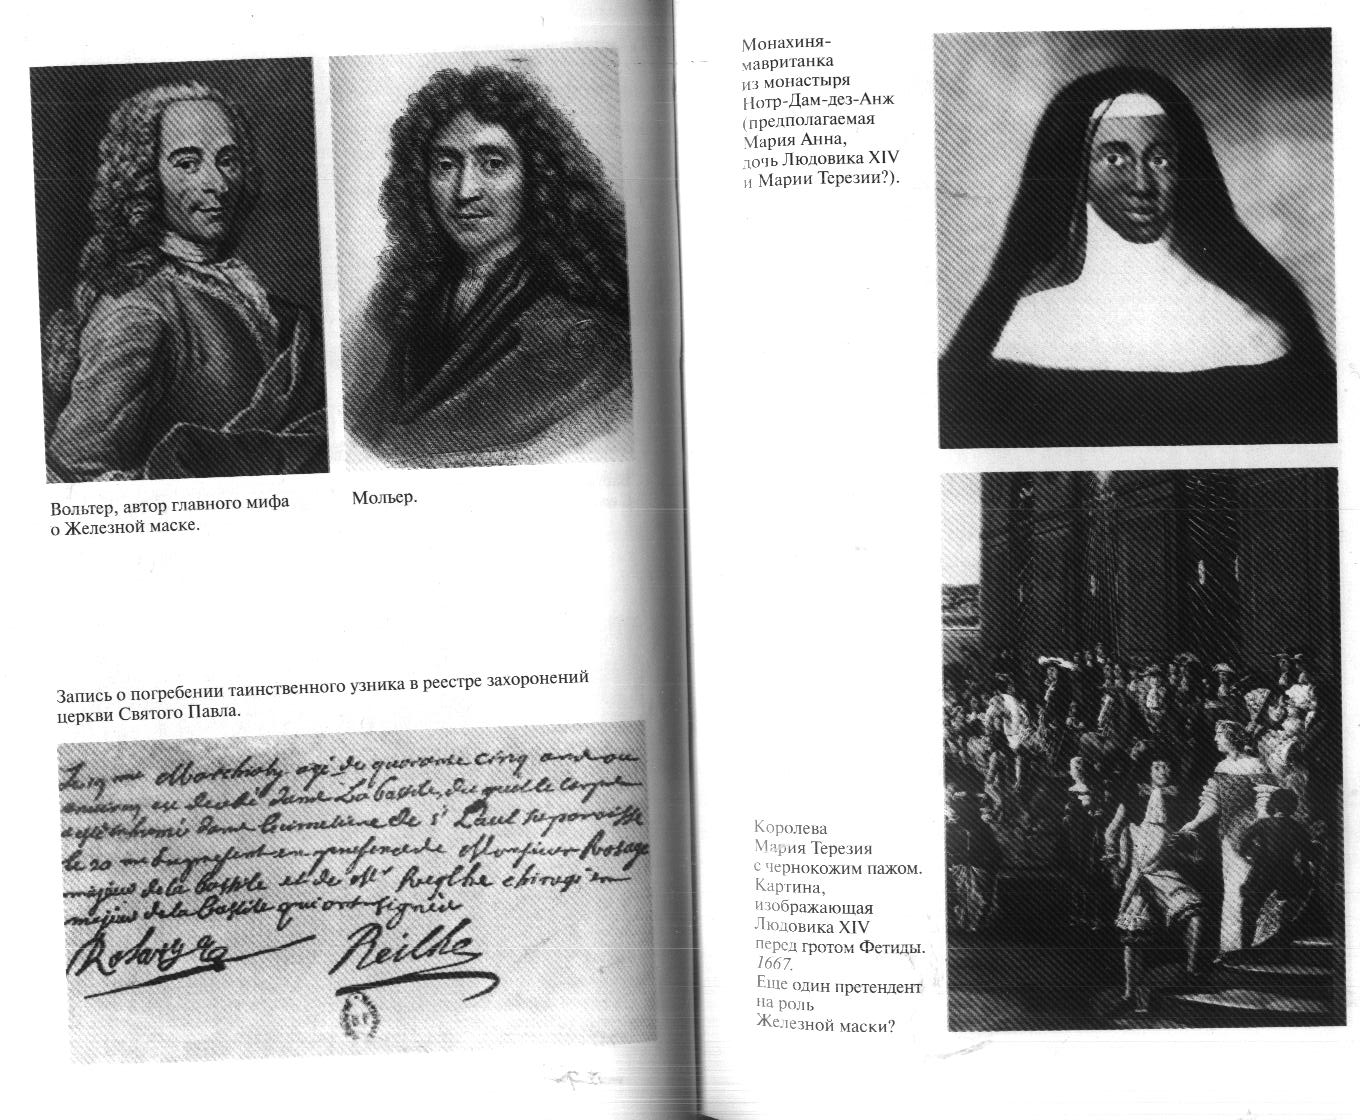 Вольтер, автор главного мифа
о Железной маске.
Мольер.
Запись о погребении таинственного узника в реестре захоронений
церкви Святого Павла.
agé de quarante cinq ans ou
environ est decedé dans La bastile, du quel le corps
a esté inhumé dans le cimetiere de St Paul sa paroisse
le 20 me du present en presence de Monsieur Rosage
majeur de la bastile et de Mr Reglhe chirugien
majeur de la bastile qui ont signée
Reilhe
Монахиня-
мавританка
из монастыря
Нотр-Дам-дез-Анж
(предполагаемая
Мария Анна,
дочь Людовика XIV
и Марии Терезии?).
Королева
Мария Терезия
с чернокожим пажом.
Картина,
изображающая
Людовика XIV
перед гротом Фетиды.
1667.
Еще один претендент
на роль
Железной маски?